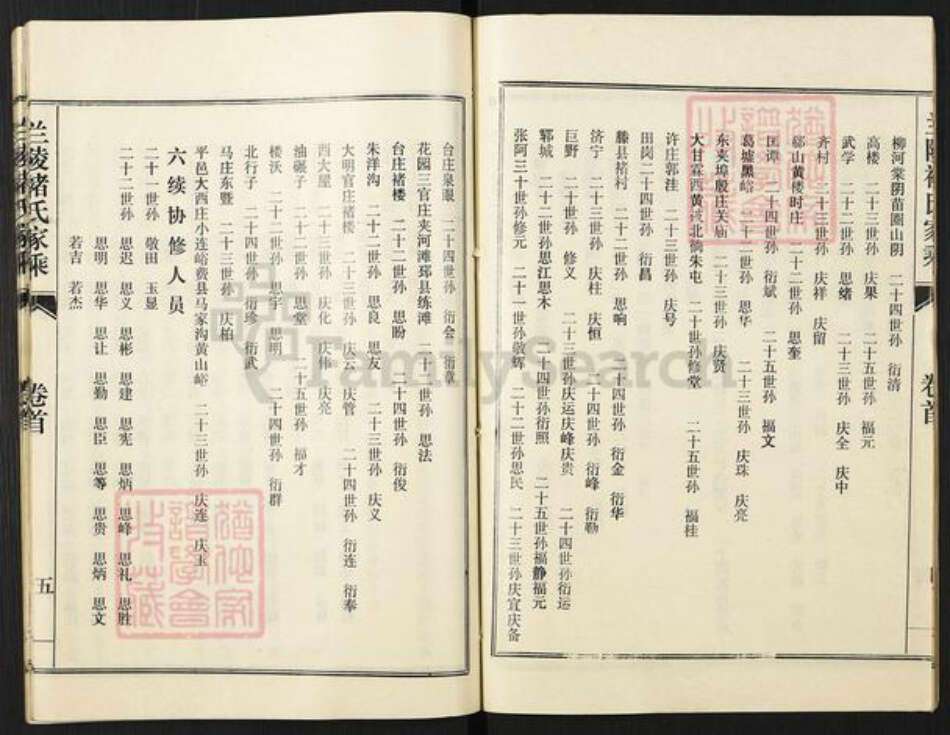 柳河棠阴苗圈山阴 二十四世孙 衍清
高楼 二十三世孙 庆果 二十五世孙 福元
武学 二十二世孙 思绪 二十三世孙 庆全 庆中
齐村 二十三世孙 庆祥 庆留
邹山黄楼时庄 二十二世孙 思奎
匡谭 二十四世孙 衍斌 二十五世孙 福文
葛墟黑峪 二十二世孙 思华 二十三世孙 庆珠 庆亮
东夹埠殷庄关庙 二十三世孙 庆贤
大甘霖西黄 北徜朱屯 二十世孙修堂 二十五世孙 福桂
许庄郭洼 二十三世孙 庆号
田岗二十四世孙 衍昌
滕县楮村 二十二世孙 思响 二十四世孙 衍金 衍华
济宁 二十三世孙 庆柱 庆恒 二十四世孙 衍峰 衍勒
巨野 二十世孙 修义 二十三世孙庆运庆峰庆贵 二十四世孙衍运
郓城 二十二世孙思江思木 二十四世孙衍照 二十五世孙福静福元
张阿二十世孙修元 二十一世孙敬辉 二十二世孙思民 二十三世孙庆宣庆备
台庄泉眼 二十四世孙 衍会 衍章
花园三官庄夹河滩邳县练滩 二十二世孙 思法
台庄褚楼 二十二世孙 思盼 二十四世孙 衍俊
朱洋沟 二十二世孙 思良 思友 二十三世孙 庆义
大明官庄褚楼 二十三世孙 庆云 庆管 二十四世孙 衍连 衍奉
西大屋 二十三世孙 庆化 庆伟 庆亮
油碾子 二十二世孙 思堂 二十五世孙 福才
楼沃 二十二世孙 思宇 思明 二十四世孙 衍群
北行子 二十四世孙 衍珍 衍武
马庄东暨 二十三世孙 庆柏
平邑大西庄小连峪费县马家沟黄山峪 二十三世孙 庆连 庆玉
六续协修人员
二十一世孙 敬田 玉显
二十二世孙 思迟 思义 思彬 思建 思宪 思炳 思峰 思礼 思胜
思明 思华 思让 思勤 思臣 思等 思贵 思炳 思文
若吉 若杰
兰陵褚氏家乘 卷首 五
兰陵褚氏家乘 卷首
FamilySearch